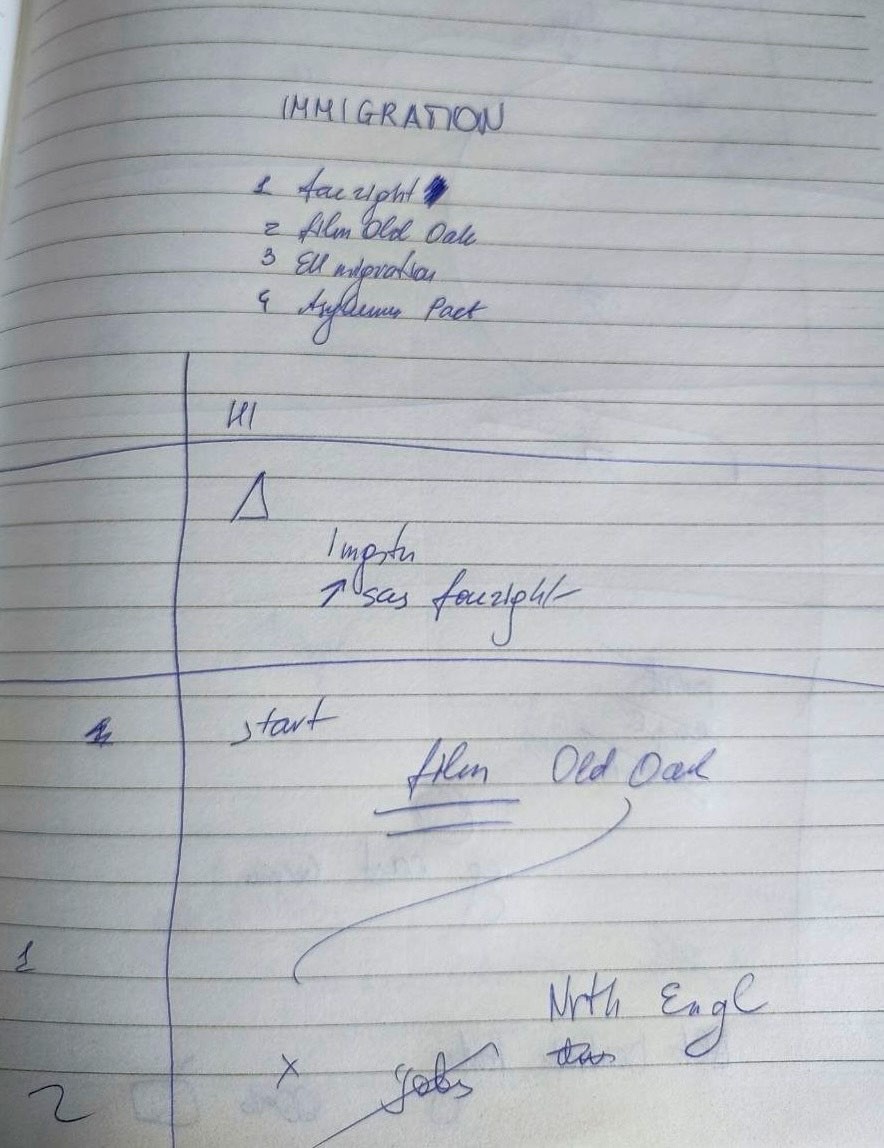 IMMIGRATION
1 far right
2 film Old Oak
3 EU migration
4 Asylum Pact
HI
Δ
↑ sas far right
start
film Old Oak
1
Nrth Engl
x jobs
2